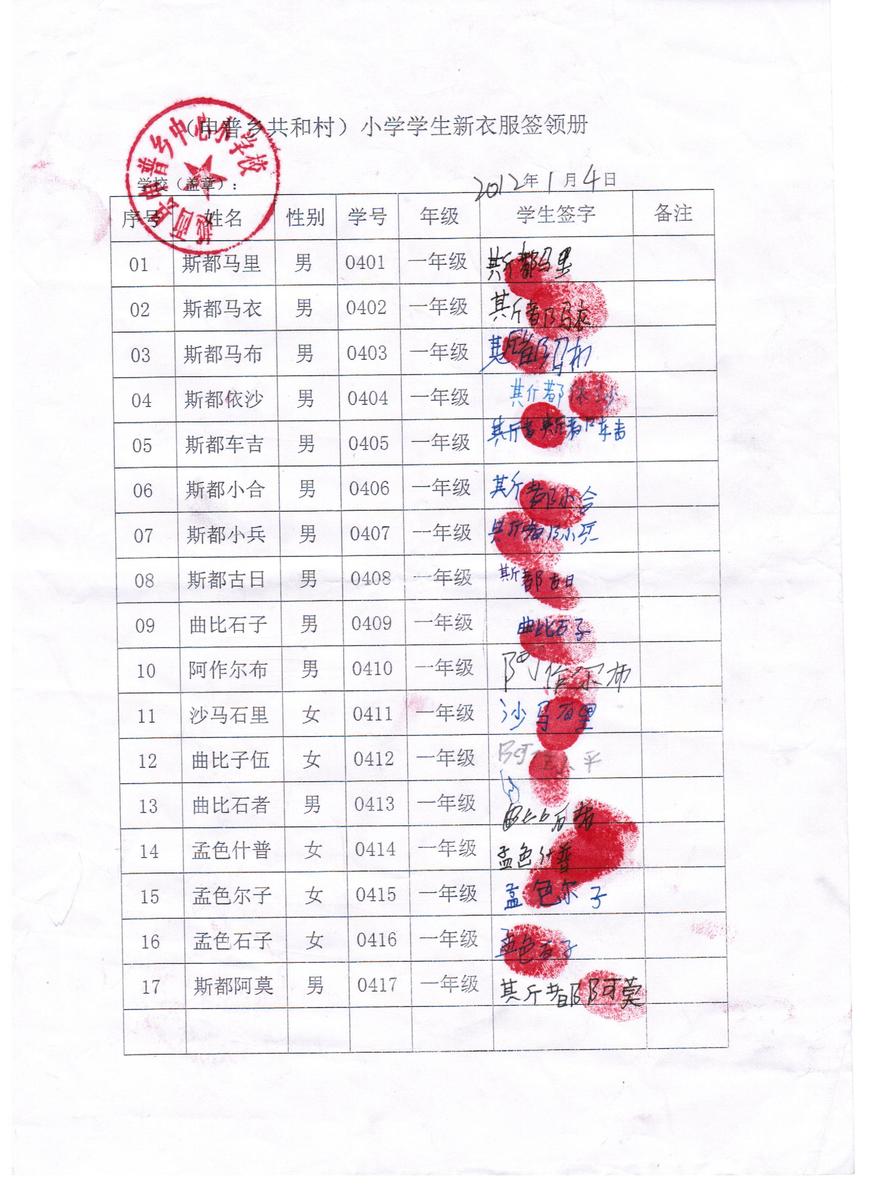 （申普乡共和村）小学学生新衣服签领册
越西县申普乡中心小学校
学校（盖章）：
2012年1月4日
序号 姓名 性别 学号 年级 学生签字 备注
01 斯都马里 男 0401 一年级 斯都马里
02 斯都马衣 男 0402 一年级 斯都马衣
03 斯都马布 男 0403 一年级 斯都马布
04 斯都依沙 男 0404 一年级 斯都依沙
05 斯都车吉 男 0405 一年级
06 斯都小合 男 0406 一年级 斯都小合
07 斯都小兵 男 0407 一年级 斯都小兵
08 斯都古日 男 0408 一年级 斯都古日
09 曲比石子 男 0409 一年级 曲比石子
10 阿作尔布 男 0410 一年级 阿作尔布
11 沙马石里 女 0411 一年级 沙马石里
12 曲比子伍 女 0412 一年级
13 曲比石者 男 0413 一年级
14 孟色什普 女 0414 一年级 孟色什普
15 孟色尔子 女 0415 一年级 孟色尔子
16 孟色石子 女 0416 一年级 孟色石子
17 斯都阿莫 男 0417 一年级 斯都阿莫